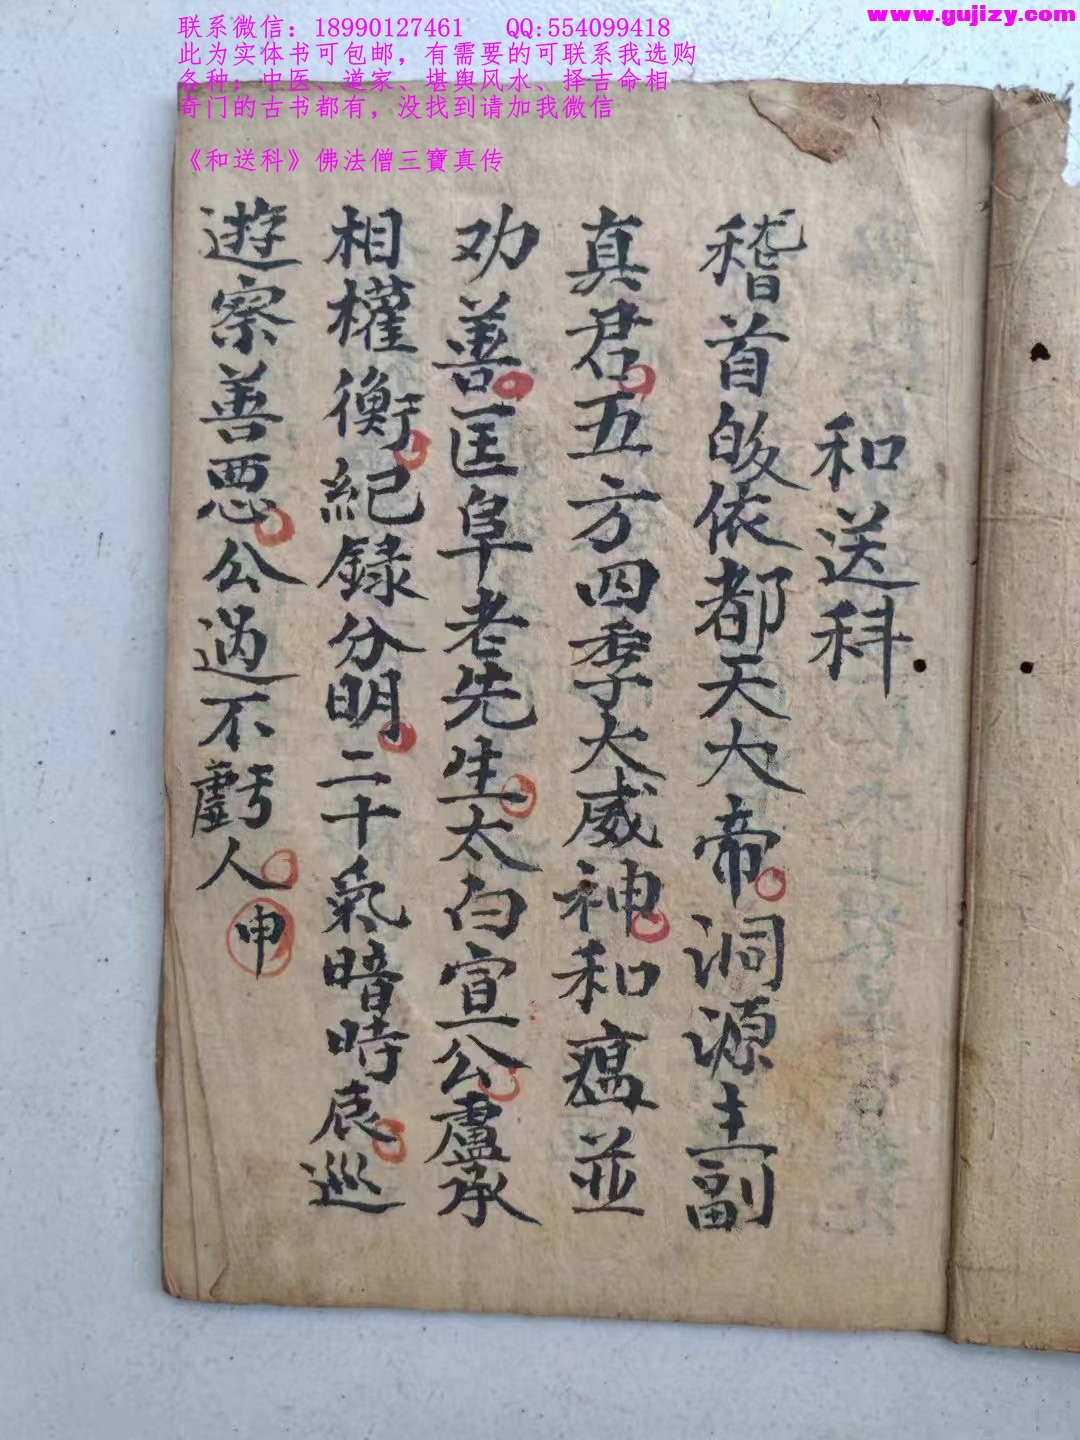 联系微信：18990127461 QQ:554099418
www.gujizy.com
此为实体书可包邮，有需要的可联系我选购
各种；中医、道家、堪舆风水、择吉命相
奇门的古书都有，没找到请加我微信
《和送科》佛法僧三寶真传
和送科
稽首皈依都天大帝洞源主副
真君五方四季大威神和瘟並
劝善匡阜老先生太白宣公盧承
相權衡紀録分明二十氣暗時巡
遊察善悪公過不虧人申